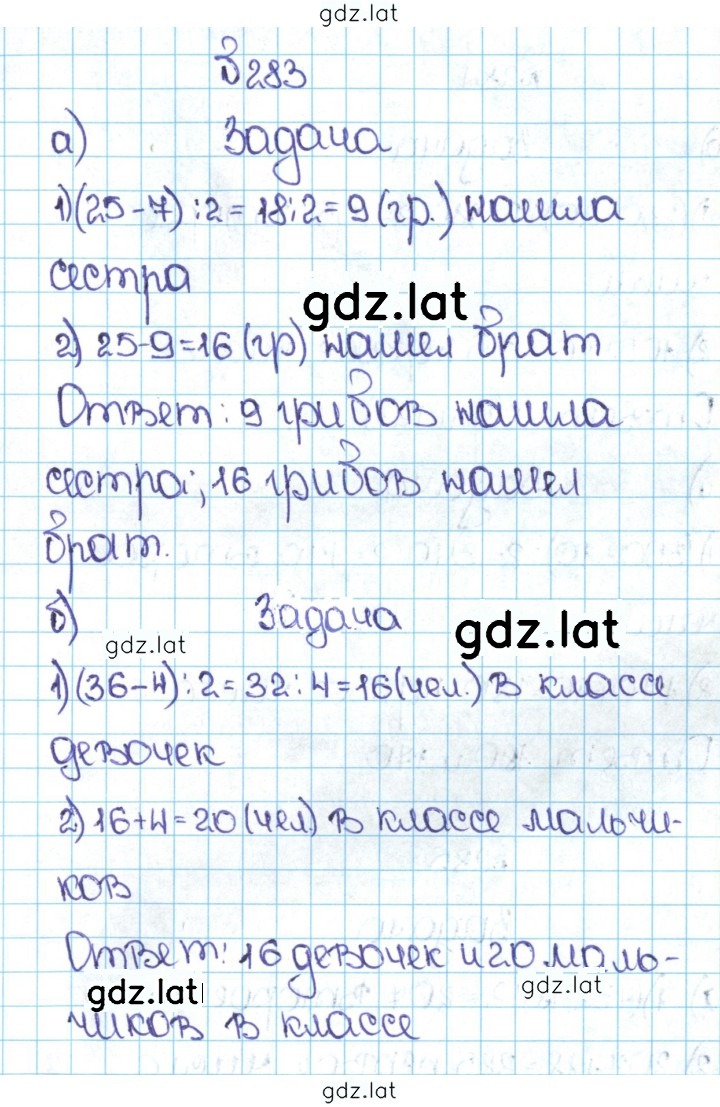 gdz.lat
283
а) Задача
1) (25-7):2=18:2=9 (гр.) нашла
сестра
gdz.lat
2) 25-9=16 (гр) нашел брат
Ответ: 9 грибов нашла
сестра; 16 грибов нашел
брат.
б) Задача
gdz.lat
gdz.lat
1) (36-4):2=32:4=16 (чел.) в классе
девочек
2) 16+4=20 (чел) в классе мальчи-
ков
Ответ: 16 девочек и 20 маль-
gdz.lat
gdz.lat
чиков в классе
gdz.lat